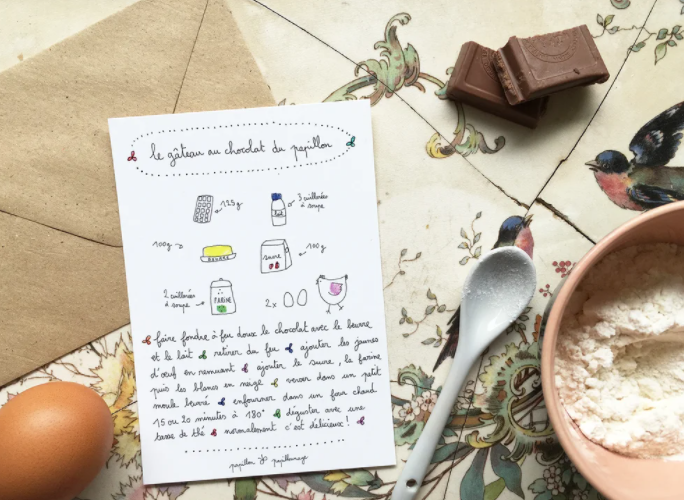 le gâteau au chocolat du papillon
125g
3 cuillerées
à soupe
lait
100g
BEURRE
sucre
100g
2 cuillerées
à soupe
FARINE
2x
faire fondre à feu doux le chocolat avec le beurre
et le lait retirer du feu ajouter les jaunes
d'œuf en remuant ajouter le sucre, la farine
puis les blancs en neige verser dans un petit
moule beurré enfourner dans un four chaud
15 ou 20 minutes à 180° déguster avec une
tasse de thé normalement c'est délicieux !
papillon papillonnage